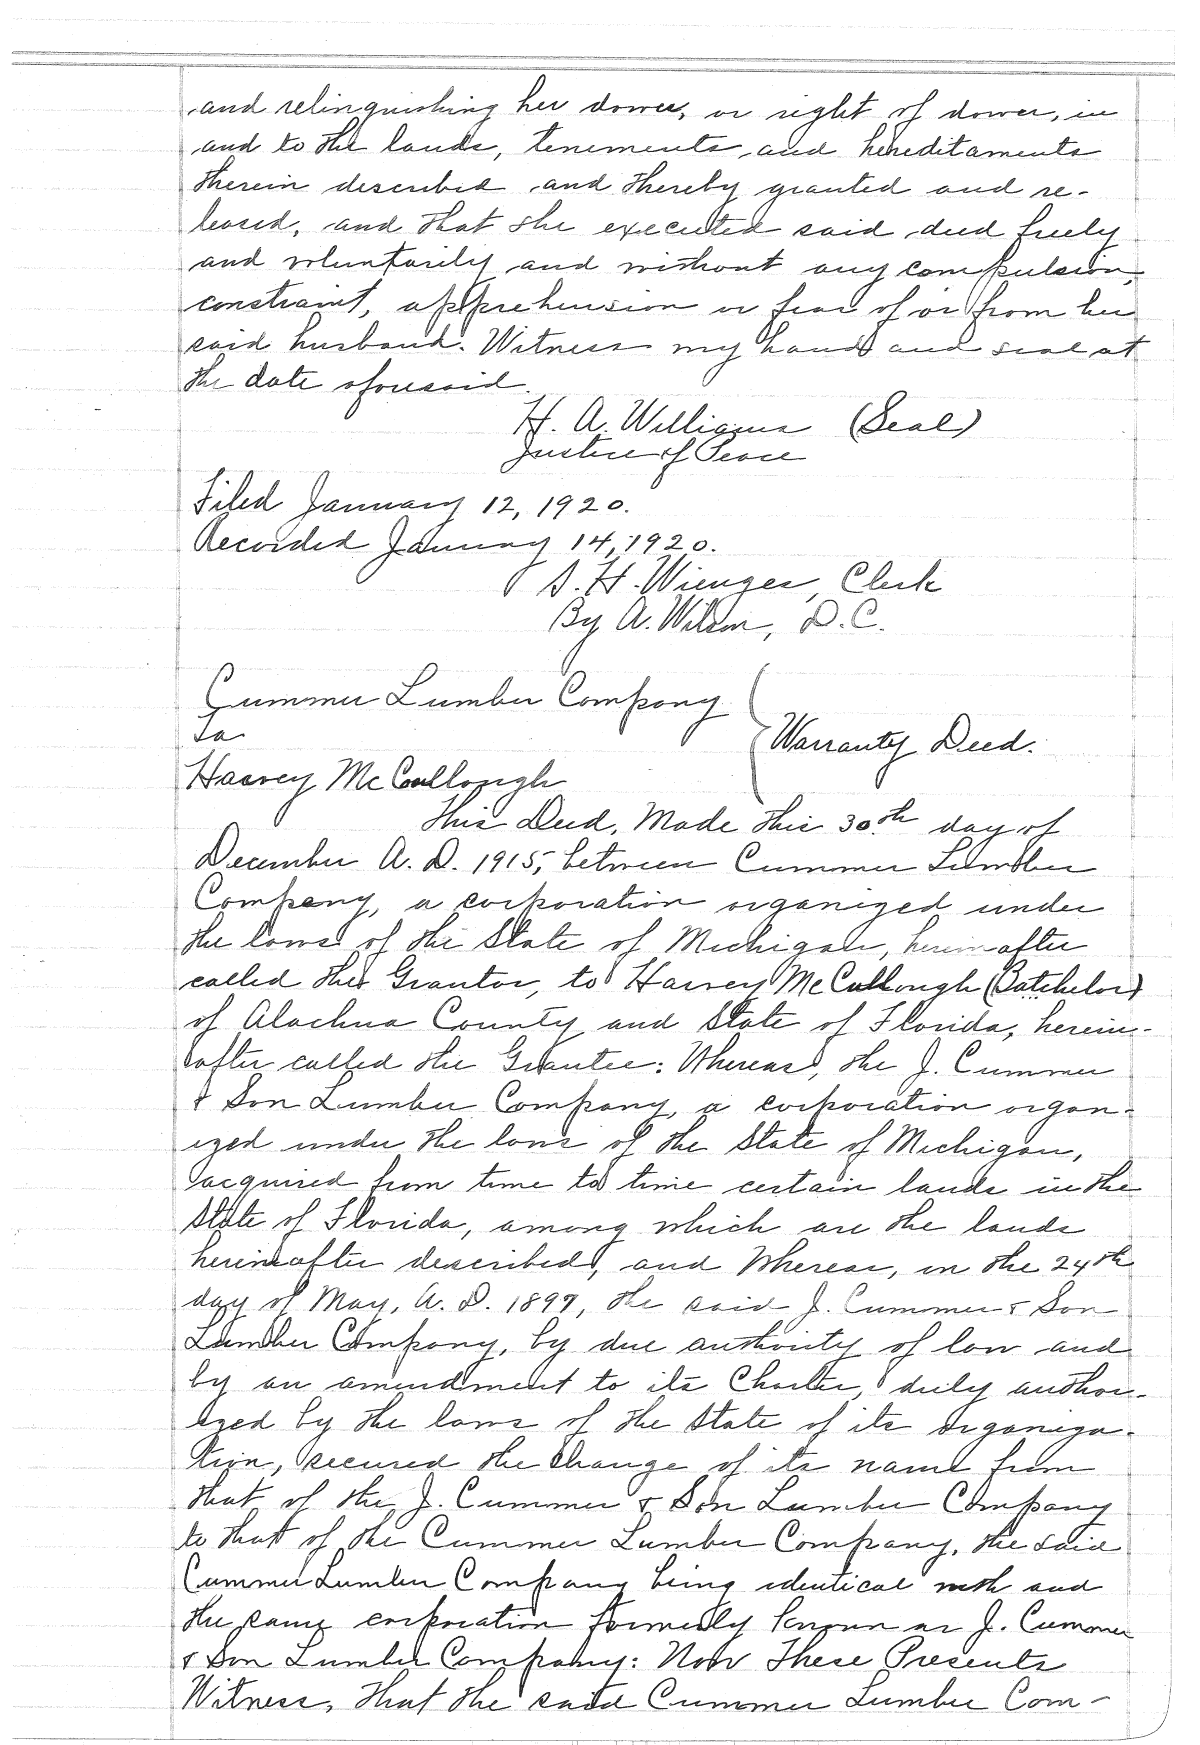 and relinquishing her dower, or right of dower, in
and to the lands, tenements and hereditaments
therein described and thereby granted and re-
leased, and that she executed said deed freely
and voluntarily and without any compulsion,
constraint, apprehension or fear of or from her
said husband. Witness my hand and seal at
the date aforesaid.
H. A. Williams (Seal)
Justice of Peace
Filed January 12, 1920.
Recorded January 14, 1920.
S. H. Wienges, Clerk
By A. Wilson, D.C.
Cummer Lumber Company
To
Warranty Deed.
Harvey McCullough
This Deed, Made this 30th day of
December A. D. 1915, between Cummer Lumber
Company, a corporation organized under
the laws of the State of Michigan, hereinafter
called the Grantor, to Harvey McCullough (Batchelor)
of Alachua County and State of Florida, herein-
after called the Grantee: Whereas, the J. Cummer
& Son Lumber Company, a corporation organ-
ized under the laws of the State of Michigan,
acquired from time to time certain lands in the
State of Florida, among which are the lands
hereinafter described, and Whereas, on the 24th
day of May, A. D. 1897, the said J. Cummer & Son
Lumber Company, by due authority of law and
by an amendment to its Charter, duly author-
ized by the laws of the State of its organiza-
tion, secured the change of its name from
that of the J. Cummer & Son Lumber Company
to that of the Cummer Lumber Company, the said
Cummer Lumber Company being identical with and
the same corporation formerly known as J. Cummer
& Son Lumber Company: Now These Presents
Witness, That the said Cummer Lumber Com-